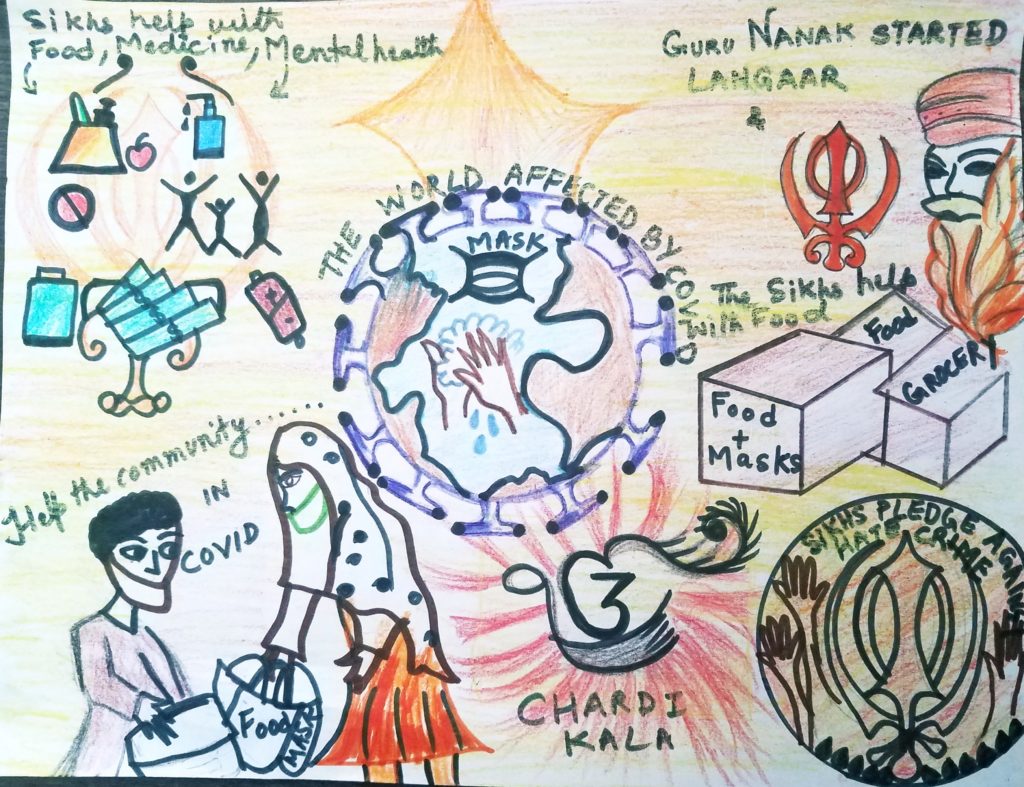 Sikhs help with
Food, Medicine, Mental health
GURU NANAK STARTED
LAHGAAR
&
THE WORLD AFFECTED BY COVID
MASK
The Sikhs help
with Food
Food
GROCERY
Food
+
Masks
Help the community......
IN
COVID
Food
MASK
ੴ
CHARDI
KALA
SIKHS PLEDGE AGAINST
HATE CRIME